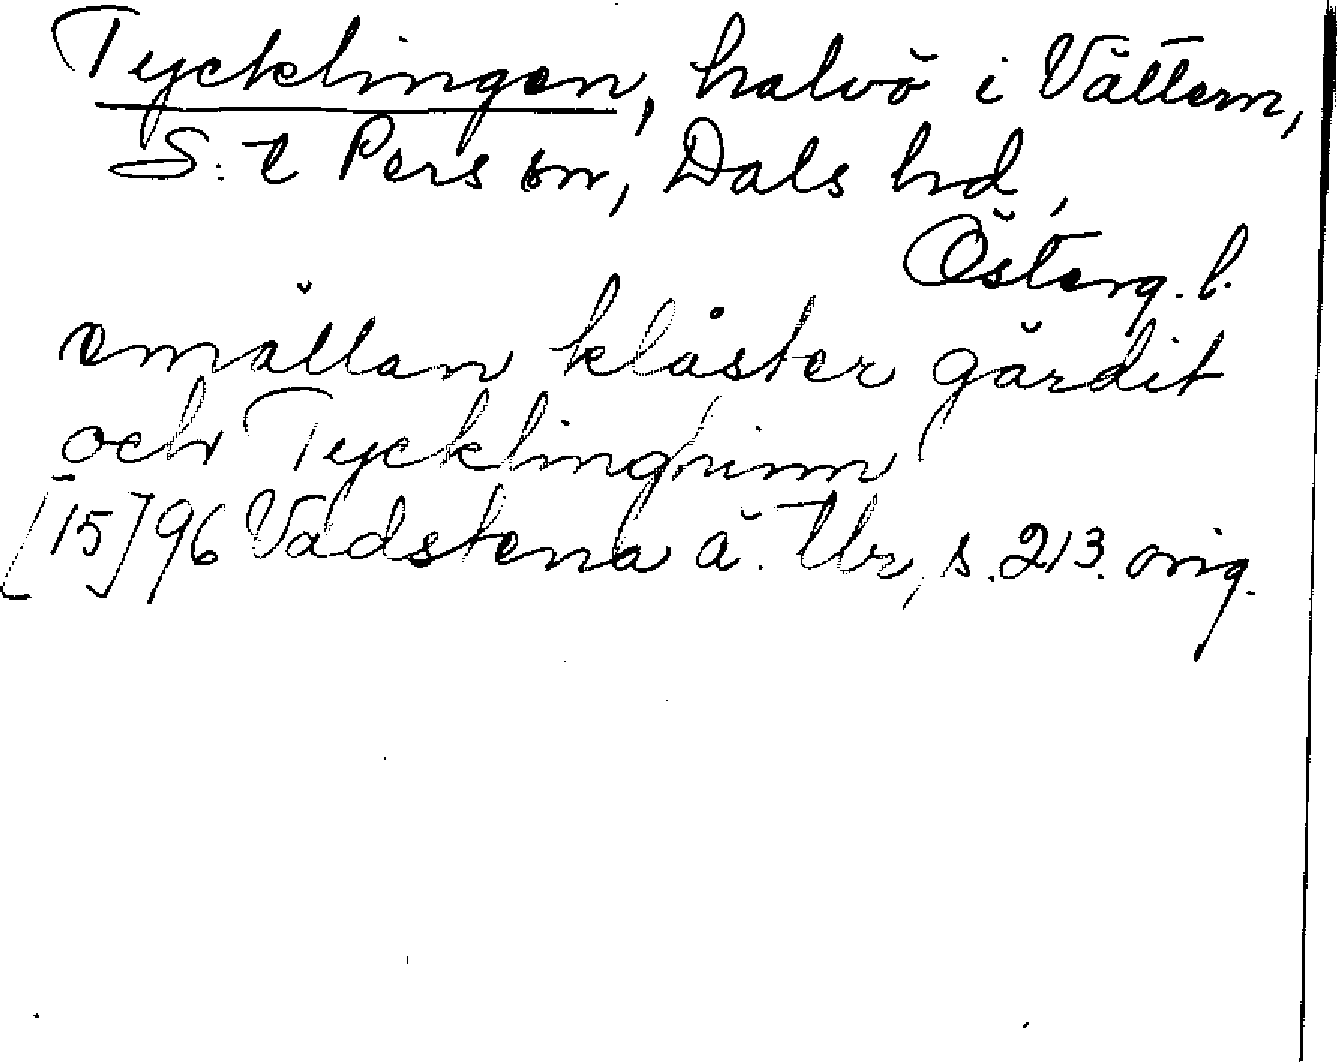 Tycklingen, halvö i Vättern,
S:t Pers sn, Dals hd,
Österg. l.
emällan klåster gärdit
och Tycklinginn
[15]96 Vadstena ä. Tb, s. 213. orig.